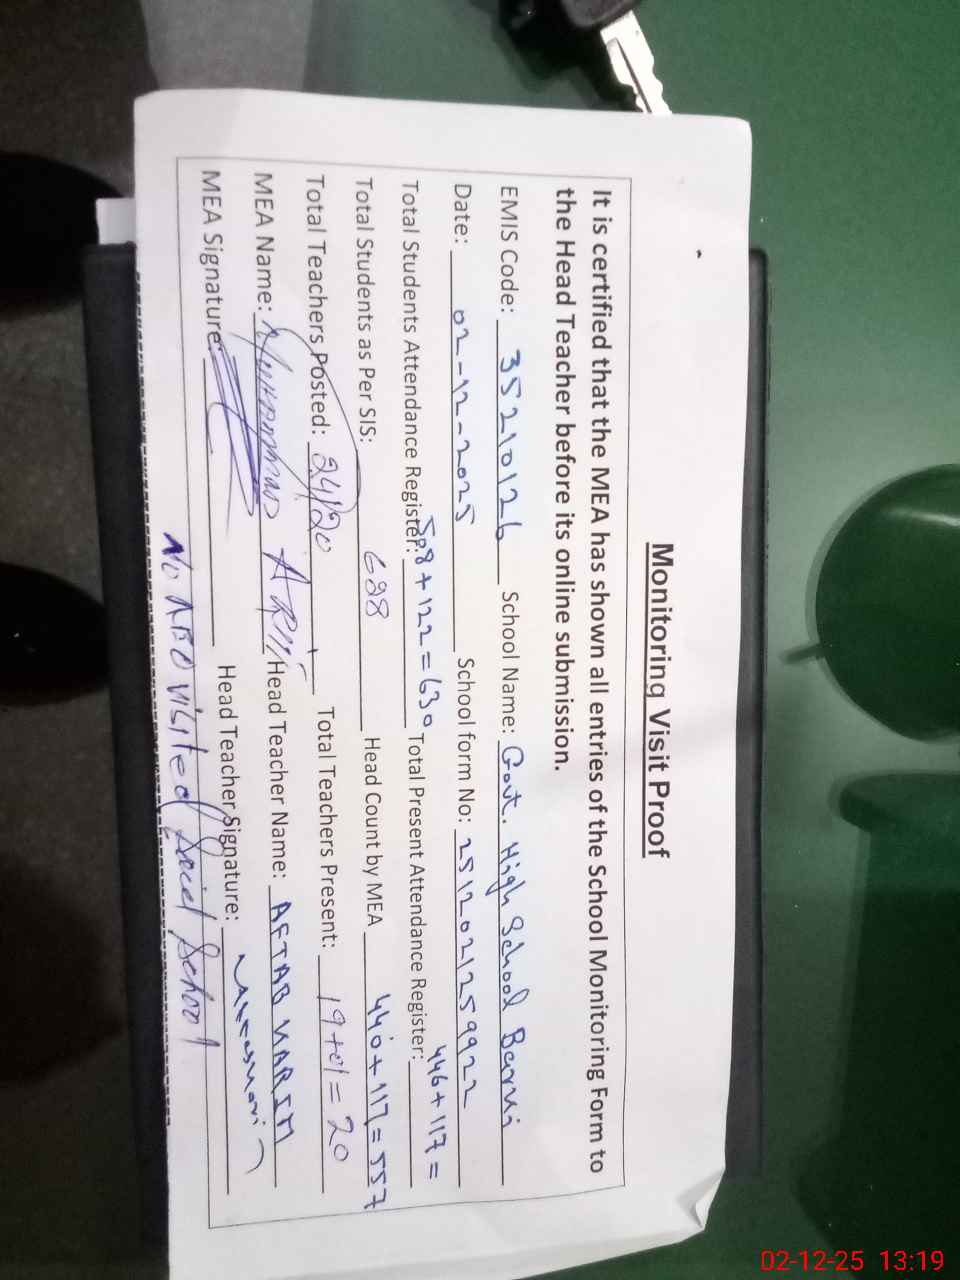 Monitoring Visit Proof
It is certified that the MEA has shown all entries of the School Monitoring Form to
the Head Teacher before its online submission.
EMIS Code: 35210126 School Name: Govt. High School
Date: 02-12-2025 School form No: 2512021259922
Total Students Attendance Register: 508+122=630 Total Present Attendance Register: 446+117=
Total Students as Per SIS: 688 Head Count by MEA 440+117=557
Total Teachers Posted: 24/20 Total Teachers Present: 19+01=20
MEA Name: Muhammad ARIF Head Teacher Name: AFTAB
MEA Signature: Head Teacher Signature:
No AEO visited School
02-12-25 13:19